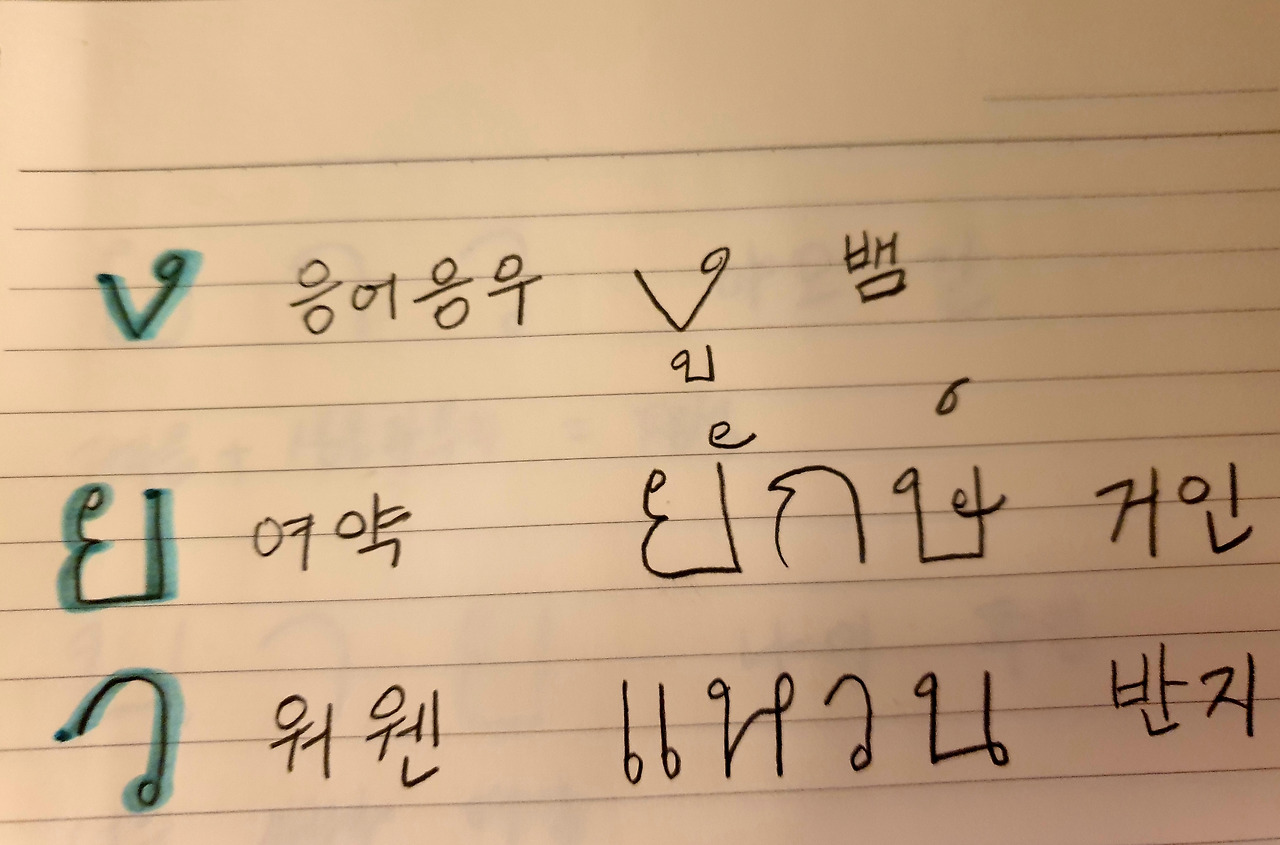 ง 응어응우 งู 뱀
ย 여약 ยักษ์ 거인
ว 워웬 แหวน 반지